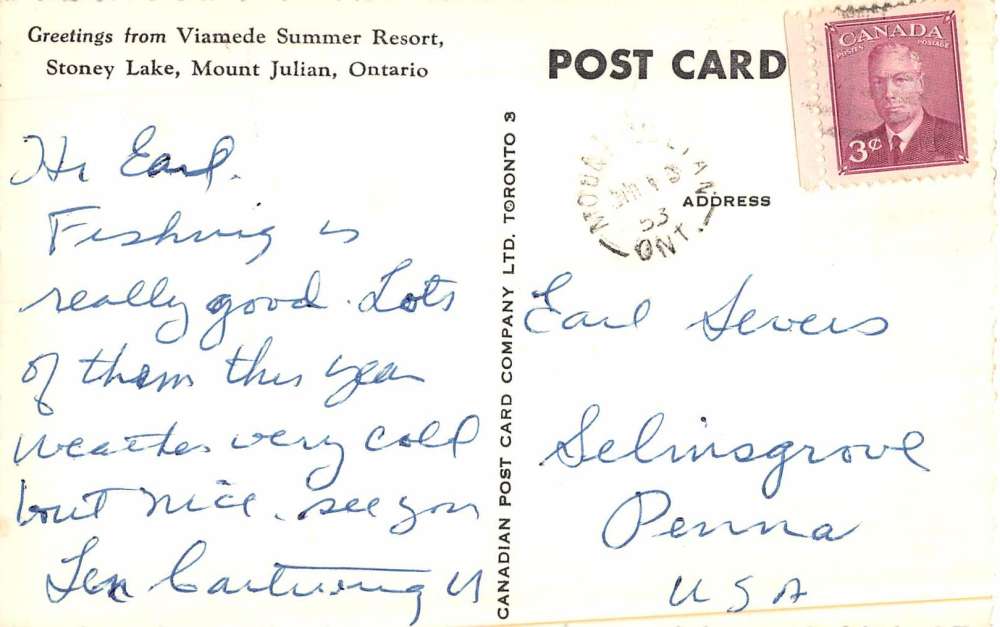 Greetings from Viamede Summer Resort,
Stoney Lake, Mount Julian, Ontario
Hi Earl.
Fishing is
really good. Lots
of them this year
weather very cold
but nice. see you
Len Cartwright
CANADIAN POST CARD COMPANY LTD. TORONTO 3
POST CARD
CANADA
POSTES POSTAGE
3¢
MOUNT JULIAN
53
ONT.
ADDRESS
Earl Severs
Selinsgrove
Penna
USA